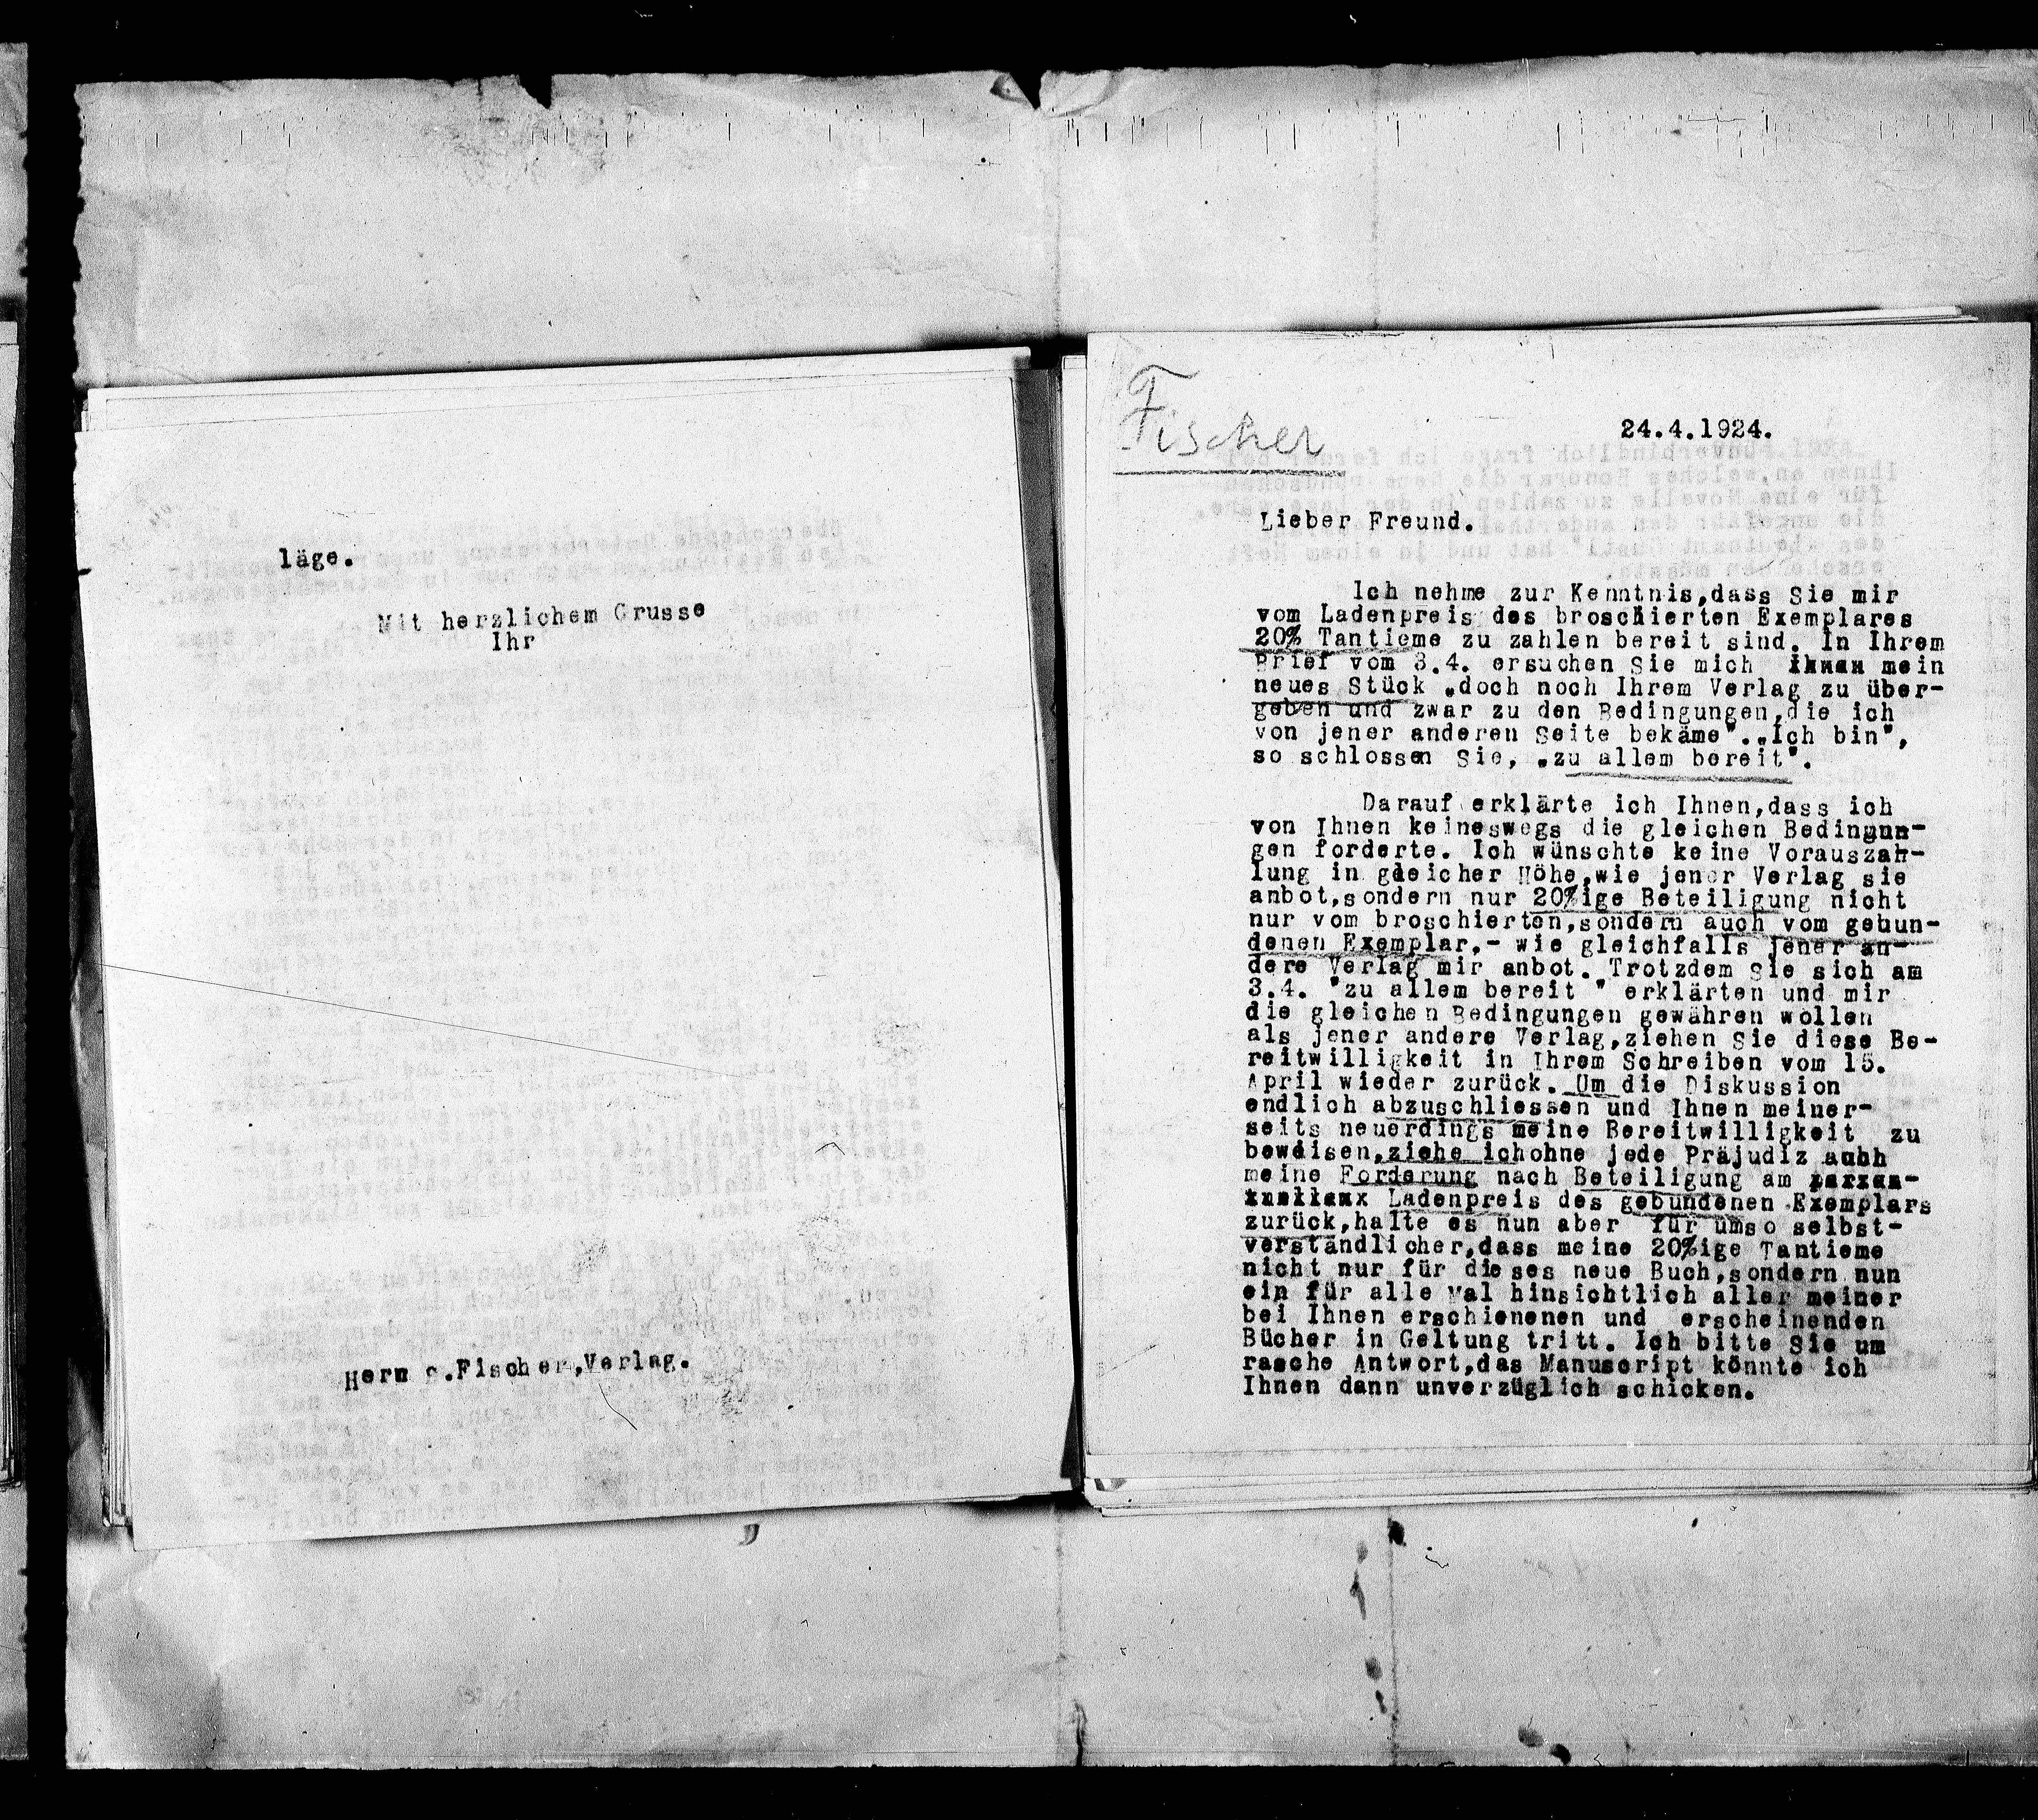 läge.
Mit herzlichem Grusse
Ihr
Herrn S.Fischer,Verlag.
Fischer
24.4.1924.
Lieber Freund.
Ich nehme zur Kenntnis,dass Sie mir
vom Ladenpreis des broschierten Exemplares
20% Tantieme zu zahlen bereit sind. In Ihrem
Brief vom 3.4. ersuchen Sie mich mein
neues Stück „doch noch Ihrem Verlag zu über-
geben und zwar zu den Bedingungen,die ich
von jener anderen Seite bekäme".„Ich bin",
so schlossen Sie, „zu allem bereit".
Darauf erklärte ich Ihnen,dass ich
von Ihnen keineswegs die gleichen Bedingun-
gen forderte. Ich wünschte keine Vorauszah-
lung in gleicher Höhe,wie jener Verlag sie
anbot,sondern nur 20%ige Beteiligung nicht
nur vom broschierten,sondern auch vom gebun-
denen Exemplar,- wie gleichfalls jener an-
dere Verlag mir anbot. Trotzdem Sie sich am
3.4. "zu allem bereit " erklärten und mir
die gleichen Bedingungen gewähren wollen
als jener andere Verlag,ziehen Sie diese Be-
reitwilligkeit in Ihrem Schreiben vom 15.
April wieder zurück. Um die Diskussion
endlich abzuschliessen und Ihnen meiner-
seits neuerdings meine Bereitwilligkeit zu
beweisen,ziehe ichohne jede Präjudiz auch
meine Forderung nach Beteiligung am
Ladenpreis des gebundenen Exemplars
zurück,halte es nun aber für umso selbst-
verständlicher,dass meine 20%ige Tantieme
nicht nur für dieses neue Buch,sondern nun
ein für alle Mal hinsichtlich aller meiner
bei Ihnen erschienenen und erscheinenden
Bücher in Geltung tritt. Ich bitte Sie um
rasche Antwort,das Manuscript könnte ich
Ihnen dann unverzüglich schicken.